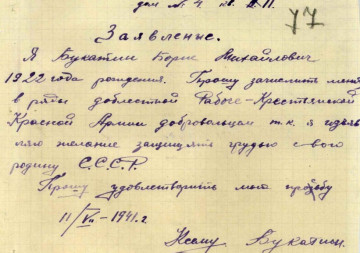 дом № 4 кв. 11
77
Заявление.
Я Букатин Борис Михайлович
1922 года рождения. Прошу зачислить меня
в ряды доблестной Рабоче-Крестьянской
Красной Армии добровольцем т.к. я
желание защищать грудью свого
родину С.С.С.Р.
Прошу удовлетворить мою прозьбу
11/VII-1941 г.
К сему Букатин.